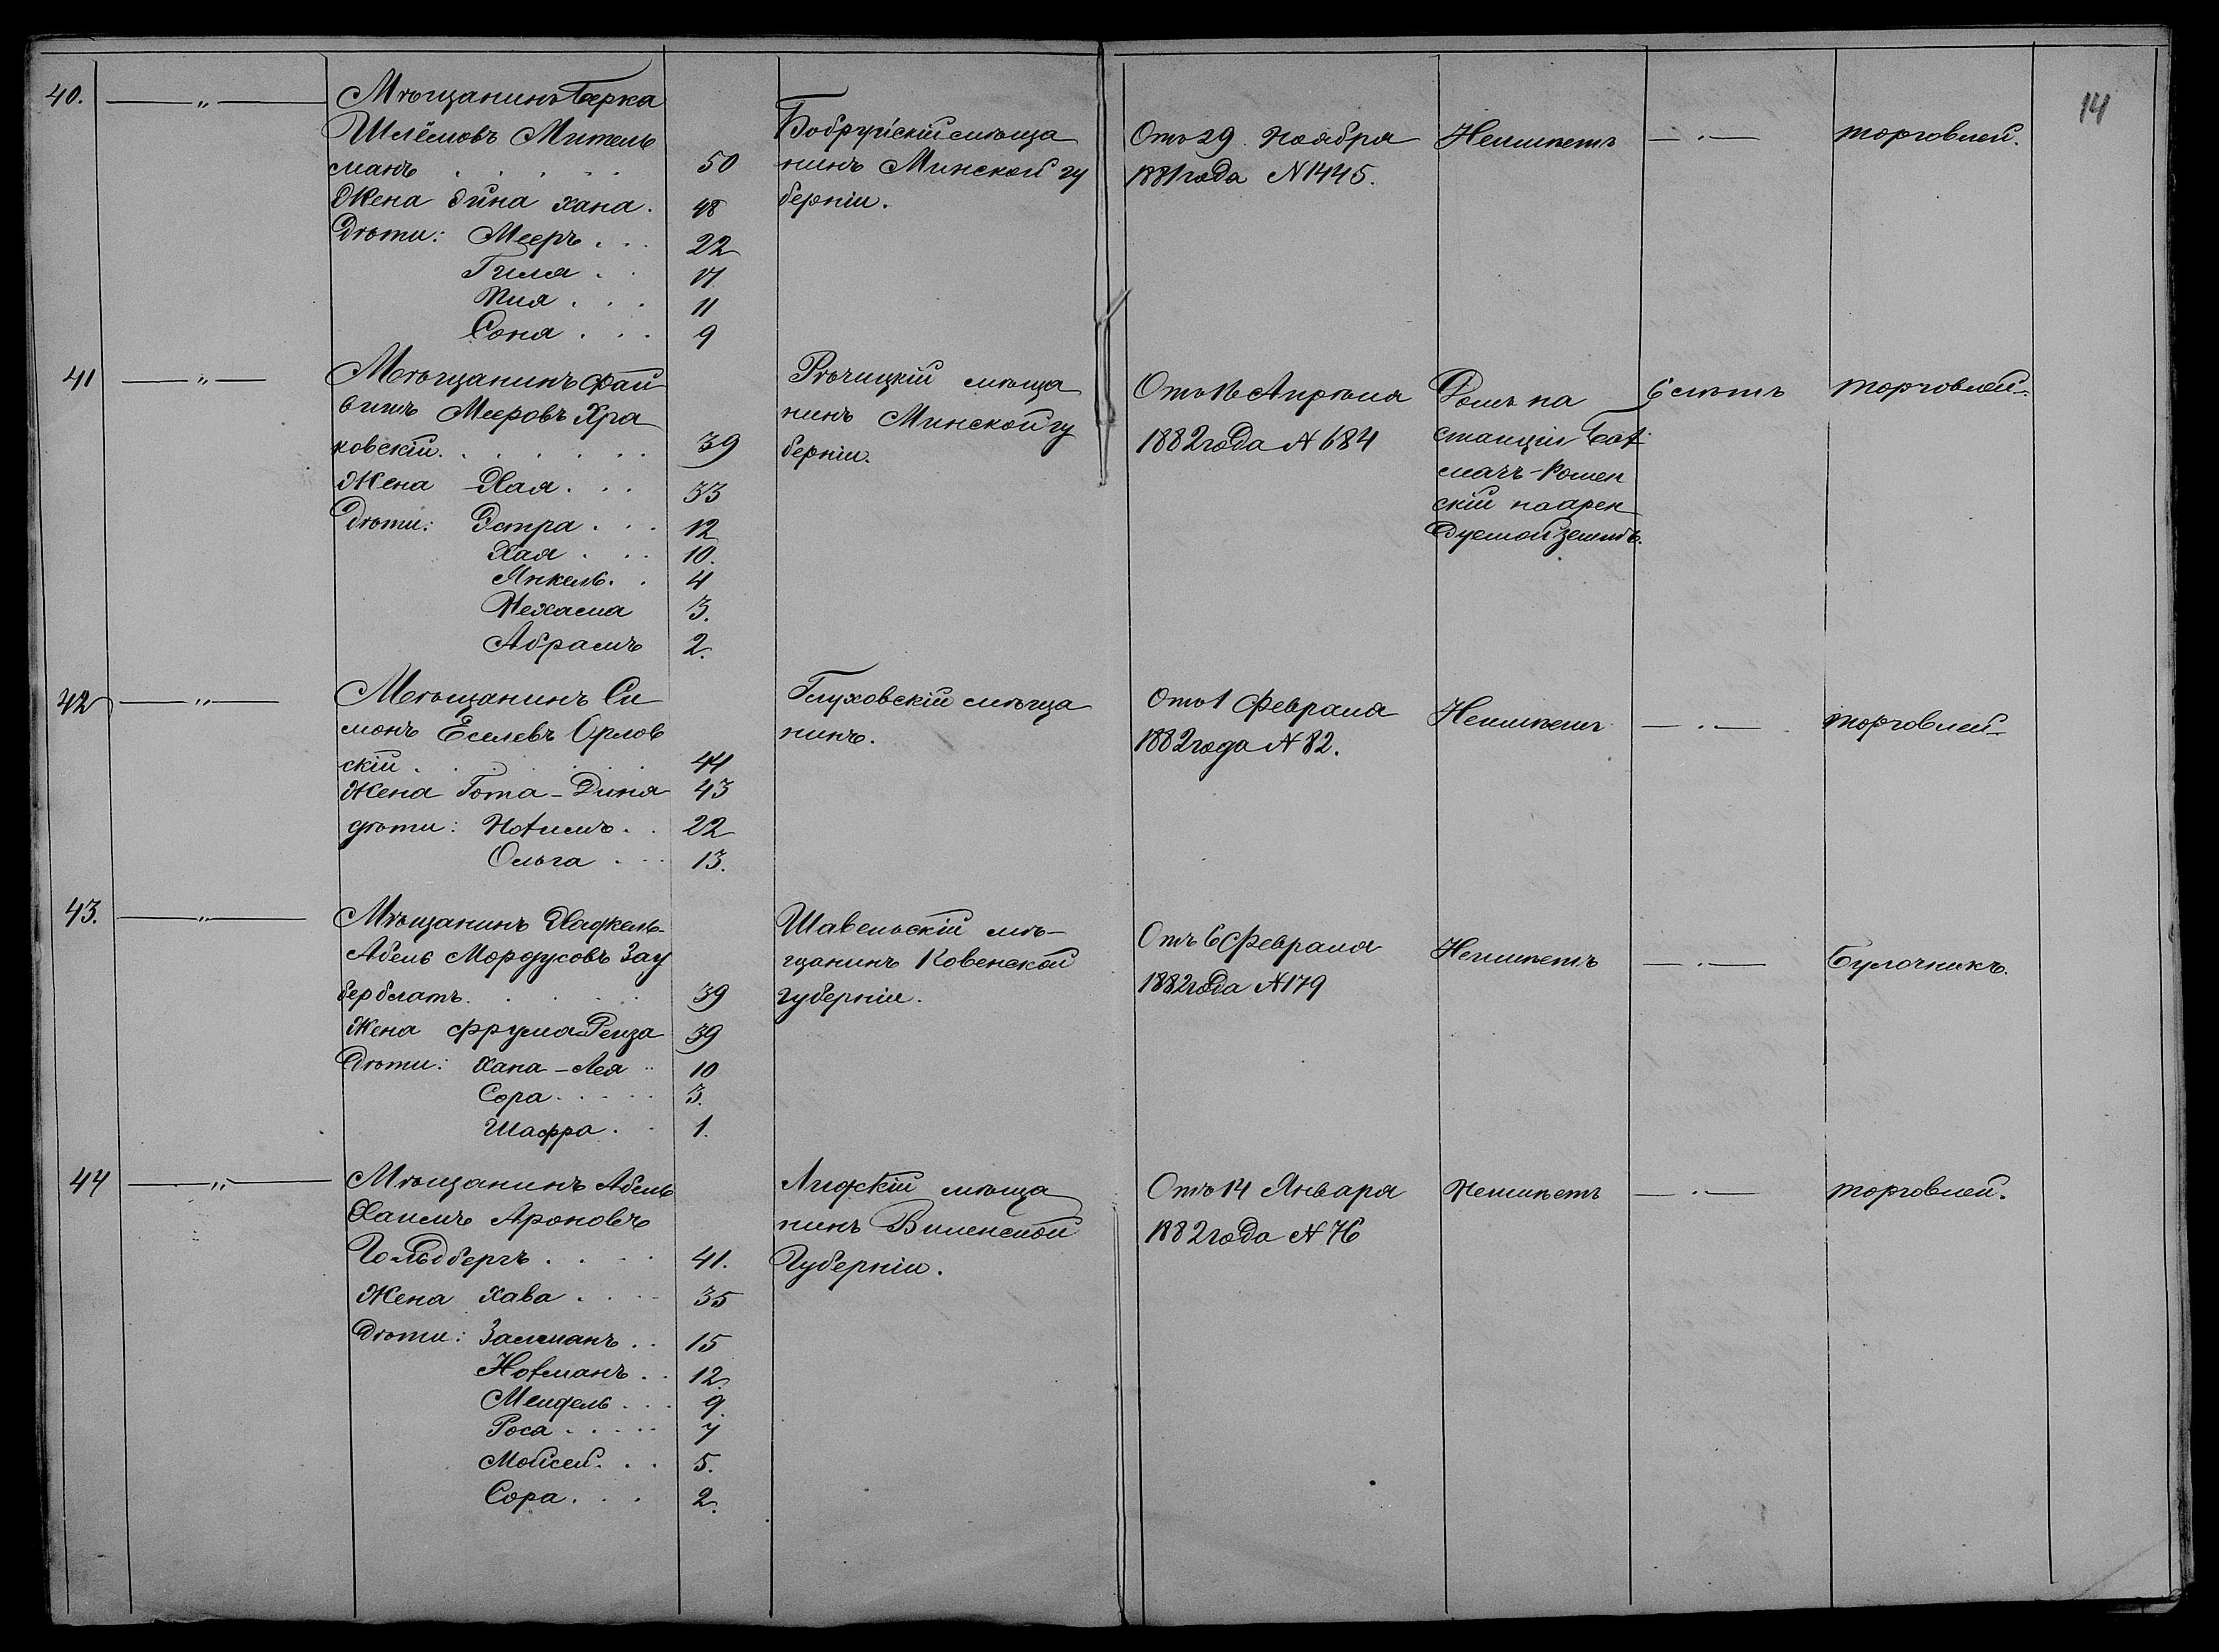 14
40. — „ — Мѣщанинъ Берка
Шлёмовъ Митель
манъ . . . . . 50
Жена Дина Хана. 48
Дѣти: Мееръ . . . 22
Гиля . . 17
Пия . . . 11
Соня . . . 9
Бобруйскій мѣща
нинъ Минской гу
берніи.
Отъ 29 Ноября
1881 года N 1445.
Неимѣетъ
— „ —
торговлей.
41 — „ — Мѣщанинъ Фай
вишъ Мееровъ Хра
ковскій. . . . . . . 39
Жена Хая. . . 33
Дѣти: Эстра . . . 12
Хая . . . 10.
Янкель. . 4
Нехама 3.
Абрамъ 2.
Рѣчицкій мѣща
нинъ Минской гу
берніи.
Отъ 16 Апрѣля
1882 года N 684
Домъ на
станціи Бах
мачъ-Ромен
скій на арен
дуемой землѣ.
6 лѣтъ
торговлей.
42 — „ — Мѣщанинъ Си
монъ Еселевъ Орлов
скій . . . . . . 44
Жена Гота-Дина 43
дѣти: Нохимъ. . 22
Ольга . . . 13.
Глуховскій мѣща
нинъ.
Отъ 1 Февраля
1882 года N 82.
Неимѣетъ
— „ —
торговлей
43. — „ — Мѣщанинъ Хацкель-
Абель Мордусовъ Зау
берблатъ. . . . . . 39
Жена Фрума Рейза 39
Дѣти: Хана-Лея .. 10
Сора. . . . . 3.
Шафра . . 1.
Шавельскій мѣ-
щанинъ Ковенской
губерніи.
Отъ 6 Февраля
1882 года N 179
Неимѣетъ
— „ —
Булочникъ.
44 — „ — Мѣщанинъ Абель
Хаимъ Ароновъ
Гольдбергъ . . . . 41.
Жена Хава . . . . 35
Дѣти: Залманъ . . 15
Нохманъ . . 12.
Мендель . . . 9.
Роса . . . . . 7
Мойсей. . . 5.
Сора. . . . 2.
Лидскій мѣща
нинъ Виленской
Губерніи.
Отъ 14 Января
1882 года N 76
Неимѣетъ
— „ —
торговлей.